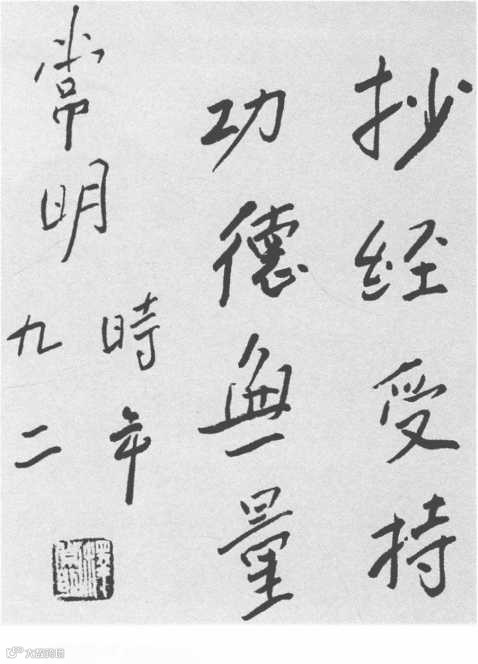 抄经受持
功德無量
常明
時年
九二